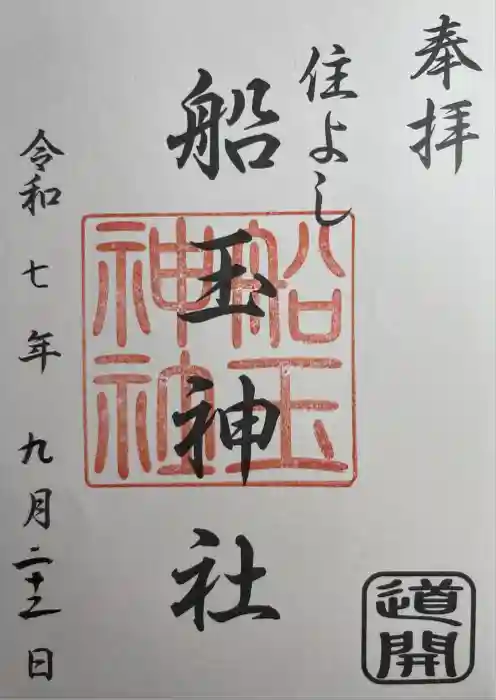 奉拝
住よし
船玉神社
船玉神社
令和七年九月二十二日
道開